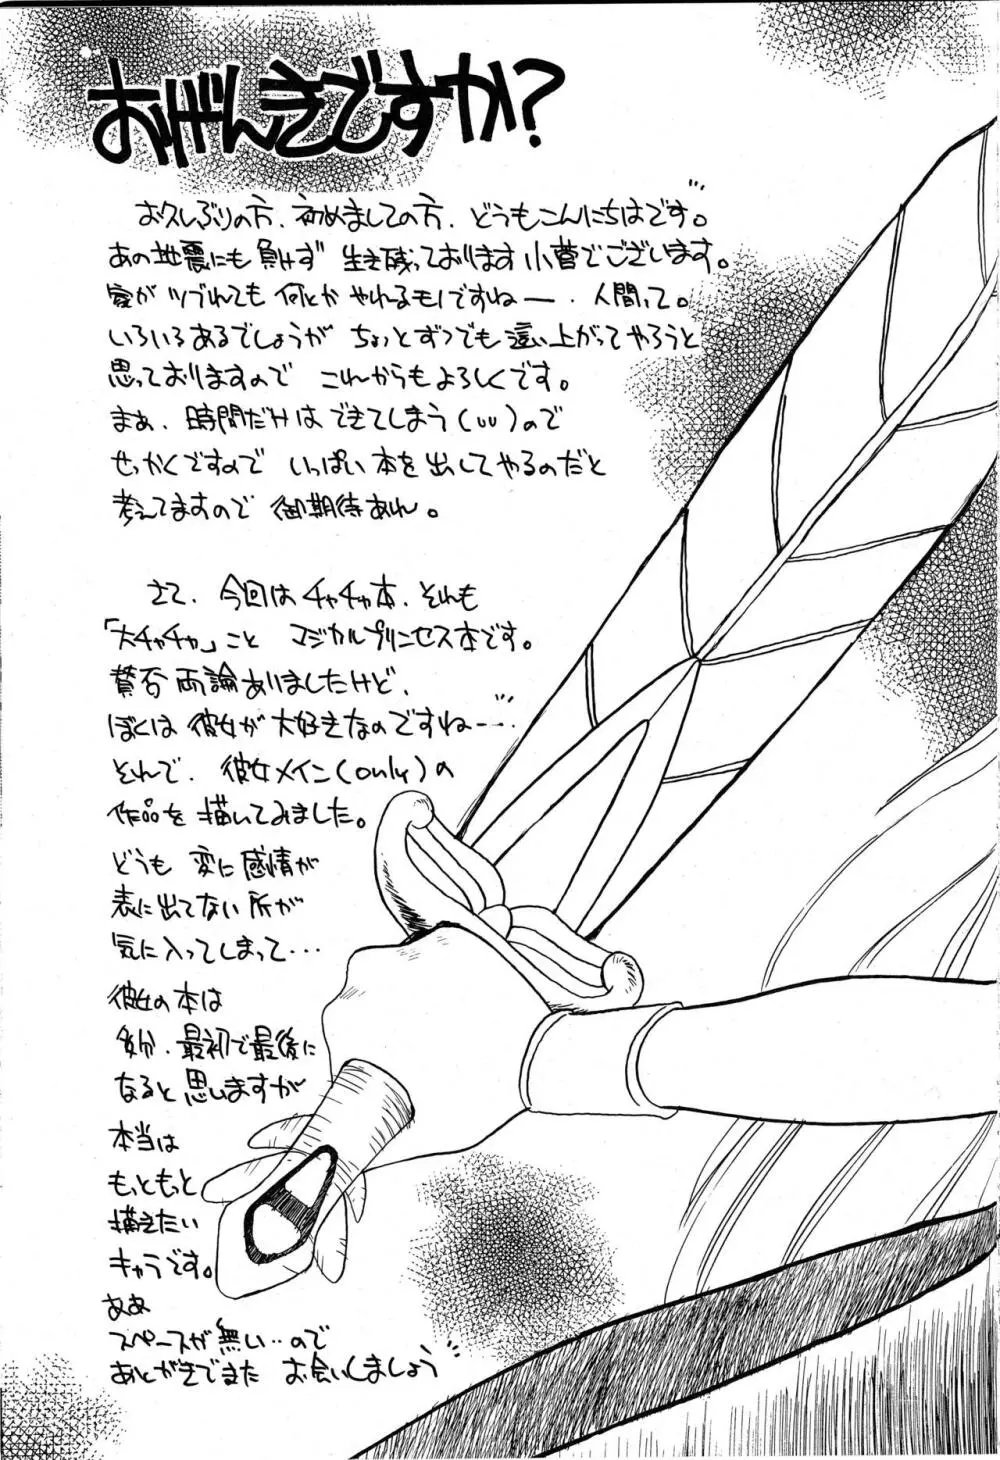 おげんきですか?
お久しぶりの方、初めましての方、どうもこんにちはです。
あの地震にも負けず 生き残っております小菅でございます。
家がツブれても 何とか やれるモノですねー、人間って。
いろいろあるでしょうが ちょっとずつでも這い上がってやろうと
思っておりますので これからもよろしくです。
まぁ、時間だけは できてしまう(いい)ので
せっかくですので いっぱい本を出してやるのだと
考えてますので 御期待あれ。
さて、今回はチャチャ本、それも
「大チャチャ」こと マジカルプリンセス本です。
賛否両論ありましたけど、
ぼくは 彼女が大好きなのですねー…
それで、彼女メイン(only)の
作品を描いてみました。
どうも 変に感情が
表に出てない所が
気に入ってしまって・・・
彼女の本は
多分、最初で最後に
なると思いますが
本当は
もっともっと
描きたい
キャラです。
ああ
スペースが無い…ので
あとがきでまた お会いしましょう